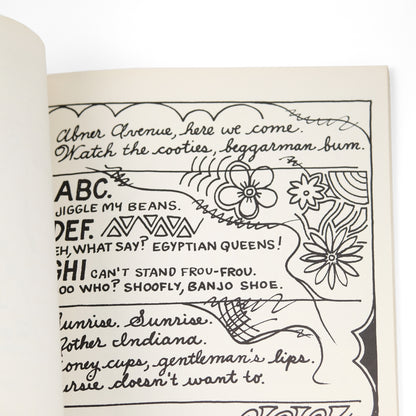 Abner Avenue, here we come.
Watch the cooties, beggarman bum.
ABC.
JIGGLE MY BEANS.
DEF.
EH, WHAT SAY? EGYPTIAN QUEENS!
GHI CAN'T STAND FROU-FROU.
WHO? SHOOFLY, BANJO SHOE.
Sunrise. Sunrise.
Indiana.
gentleman's lips.
doesn't want to.